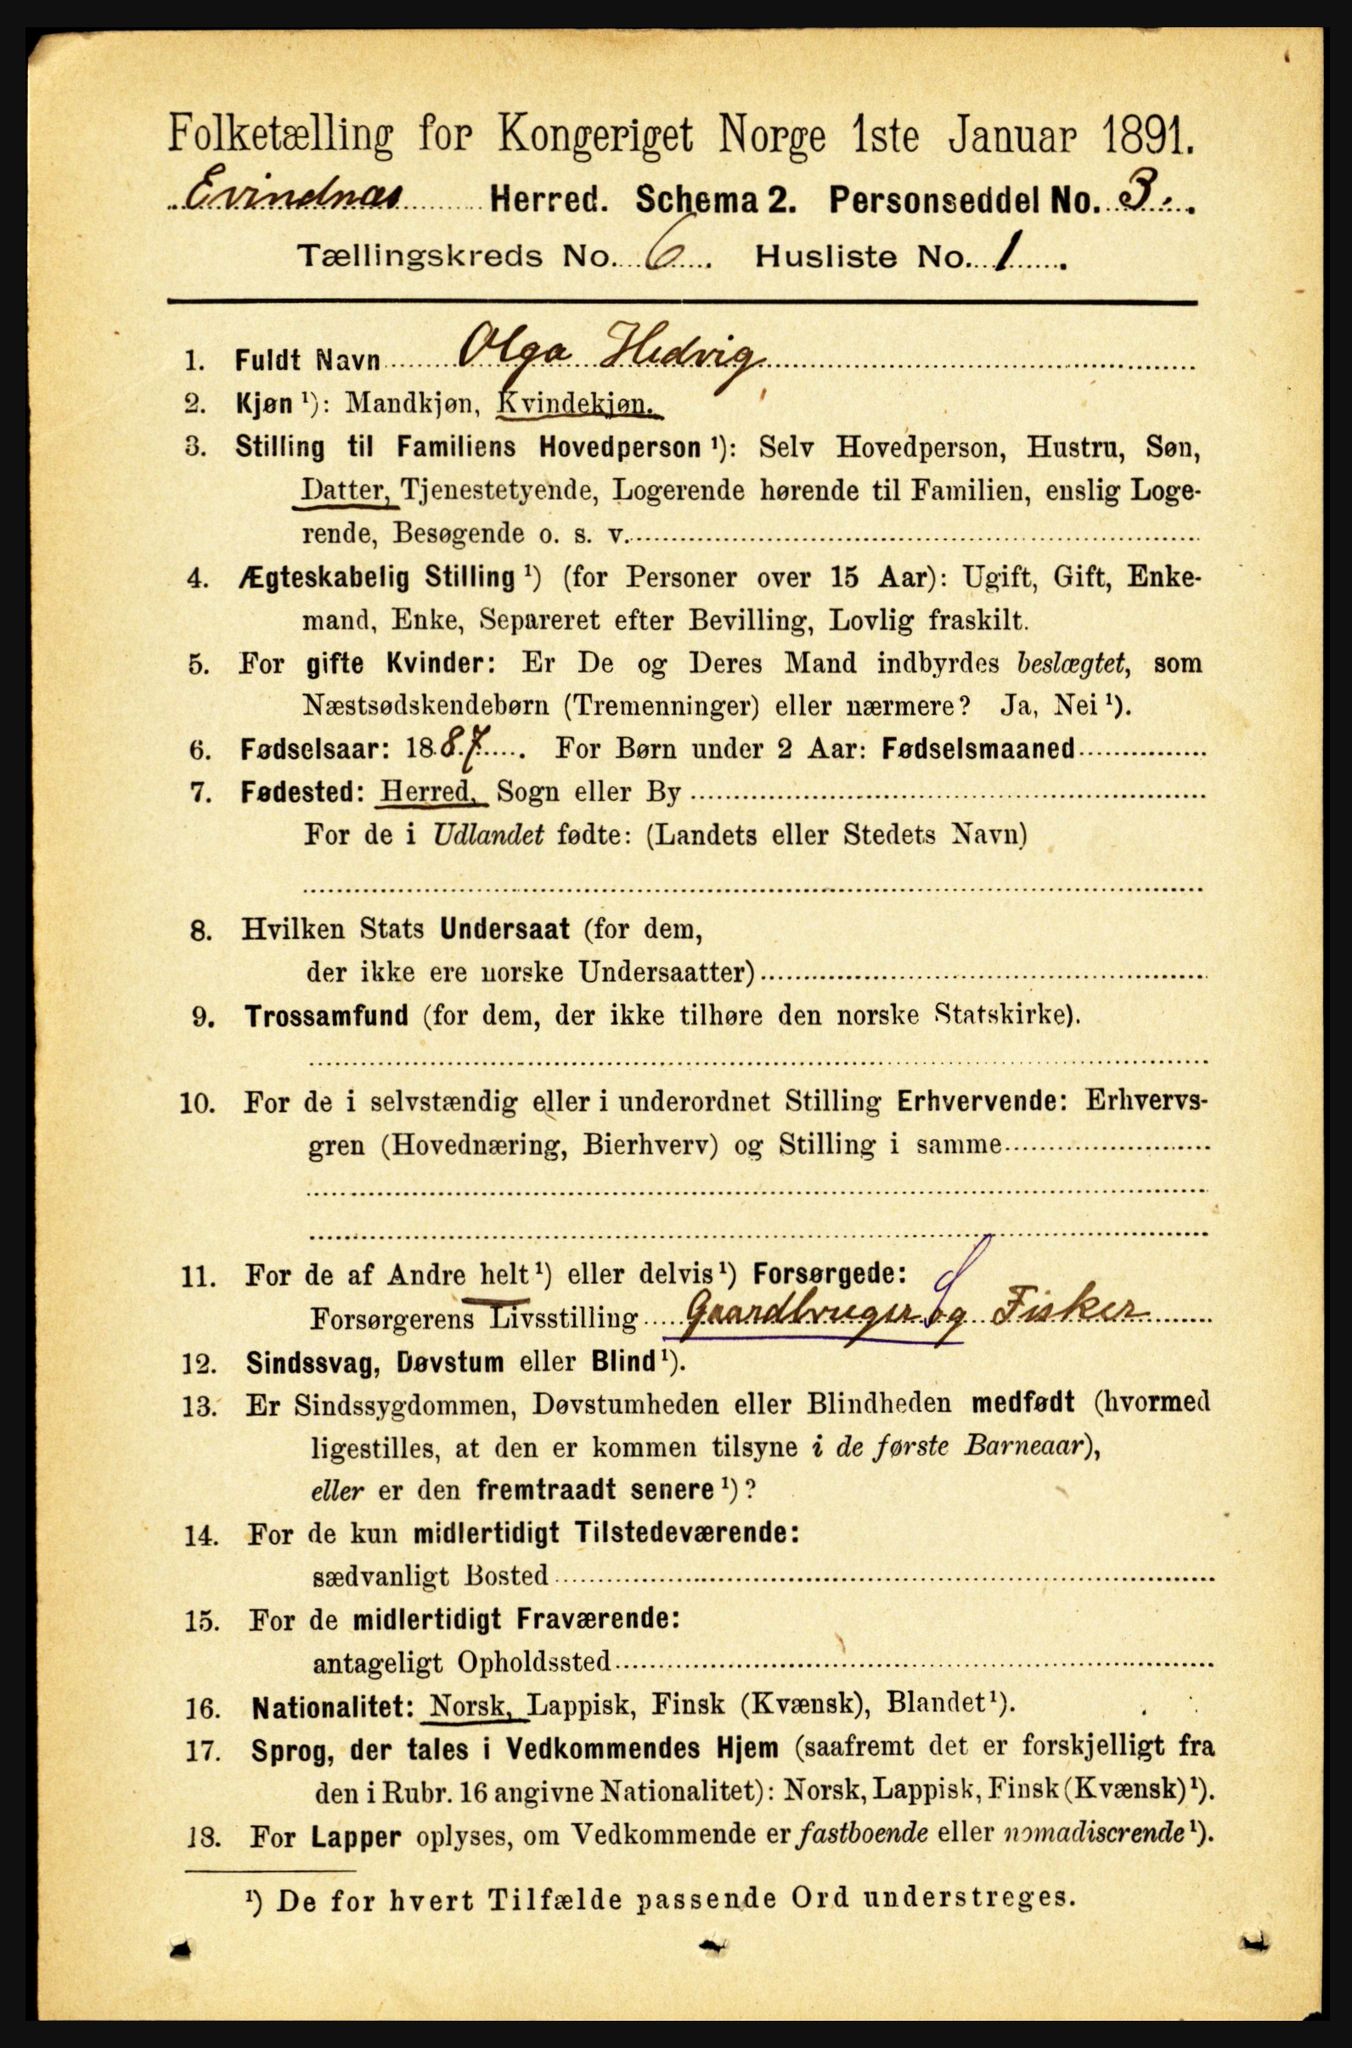 Folketælling for Kongeriget Norge 1ste Januar 1891.
Evindnæs Herred. Schema 2. Personseddel No. 3.
Tællingskreds No. 6. Husliste No. 1.
1. Fuldt Navn Olga Hedvig
2. Kjøn ¹): Mandkjøn, Kvindekjøn.
3. Stilling til Familiens Hovedperson ¹): Selv Hovedperson, Hustru, Søn,
Datter, Tjenestetyende, Logerende hørende til Familien, enslig Loge-
rende, Besøgende o. s. v.
4. Ægteskabelig Stilling ¹) (for Personer over 15 Aar): Ugift, Gift, Enke-
mand, Enke, Separeret efter Bevilling, Lovlig fraskilt.
5. For gifte Kvinder: Er De og Deres Mand indbyrdes beslægtet, som
Næstsødskendebørn (Tremenninger) eller nærmere? Ja, Nei ¹).
6. Fødselsaar: 1887. For Børn under 2 Aar: Fødselsmaaned
7. Fødested: Herred, Sogn eller By
For de i Udlandet fødte: (Landets eller Stedets Navn)
8. Hvilken Stats Undersaat (for dem,
der ikke ere norske Undersaatter)
9. Trossamfund (for dem, der ikke tilhøre den norske Statskirke).
10. For de i selvstændig eller i underordnet Stilling Erhvervende: Erhvervs-
gren (Hovednæring, Bierhverv) og Stilling i samme
11. For de af Andre helt ¹) eller delvis ¹) Forsørgede:
Forsørgerens Livsstilling Gaardbruger og Fisker
12. Sindssvag, Døvstum eller Blind ¹).
13. Er Sindssygdommen, Døvstumheden eller Blindheden medfødt (hvormed
ligestilles, at den er kommen tilsyne i de første Barneaar),
eller er den fremtraadt senere ¹)?
14. For de kun midlertidigt Tilstedeværende:
sædvanligt Bosted
15. For de midlertidigt Fraværende:
antageligt Opholdssted
16. Nationalitet: Norsk, Lappisk, Finsk (Kvænsk), Blandet ¹).
17. Sprog, der tales i Vedkommendes Hjem (saafremt det er forskjelligt fra
den i Rubr. 16 angivne Nationalitet): Norsk, Lappisk, Finsk (Kvænsk) ¹).
18. For Lapper oplyses, om Vedkommende er fastboende eller nomadiserende ¹).
¹) De for hvert Tilfælde passende Ord understreges.